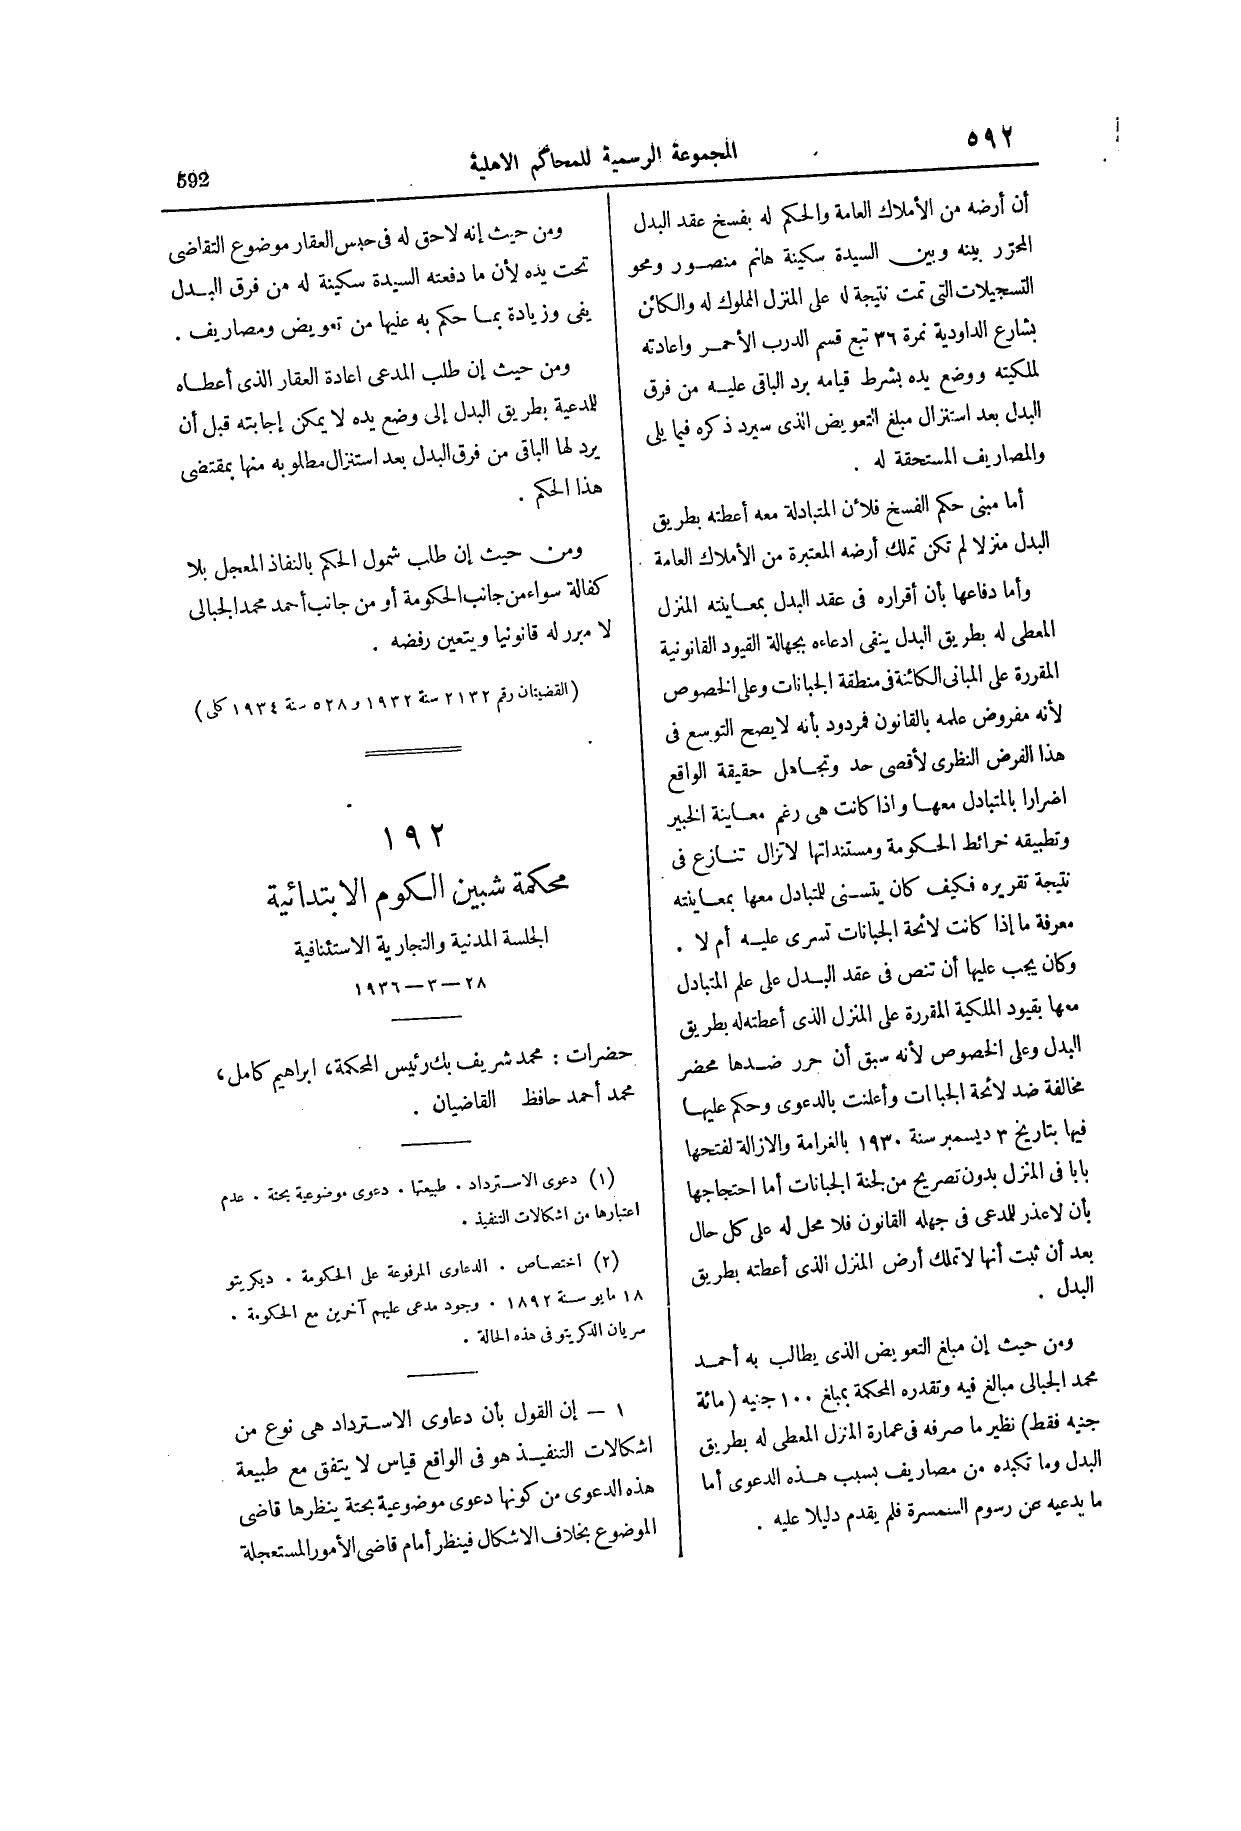 ٥٩٢
المجموعة الرسمية للمحاكم الاهلية
592
أن أرضه من الأملاك العامة والحكم له بفسخ عقد البدل
المحرّر بينه وبين السيدة سكينة هانم منصور ومحو
التسجيلات التى تمت نتيجة له على المنزل المملوك له والكائن
بشارع الداودية نمرة ٣٦ تبع قسم الدرب الأحمر واعادته
لملكيته ووضع يده بشرط قيامه برد الباقى عليه من فرق
البدل بعد استنزال مبلغ التعويض الذى سيرد ذكره فيما يلى
والمصاريف المستحقة له .
أما مبنى حكم الفسخ فلائن المتبادلة معه أعطته بطريق
البدل منزلا لم تكن تملك أرضه المعتبرة من الأملاك العامة
وأما دفاعها بأن أقراره فى عقد البدل بمعاينته المنزل
المعطى له بطريق البدل ينفى ادعاءه بجهالة القيود القانونية
المقررة على المبانى الكائنة فى منطقة الجبانات وعلى الخصوص
لأنه مفروض علمه بالقانون فمردود بأنه لايصح التوسع فى
هذا الفرض النظرى لأقصى حد وتجاهل حقيقة الواقع
اضرارا بالمتبادل معها واذا كانت هى رغم معاينة الخبير
وتطبيقه خرائط الحكومة ومستنداتها لاتزال تنازع فى
نتيجة تقريره فكيف كان يتسنى للمتبادل معها بمعاينته
معرفة ما إذا كانت لائحة الجبانات تسرى عليه أم لا .
وكان يجب عليها أن تنص فى عقد البدل على علم المتبادل
معها بقيود الملكية المقررة على المنزل الذى أعطته له بطريق
البدل وعلى الخصوص لأنه سبق أن حرر ضدها محضر
مخالفة ضد لائحة الجبانات وأعلنت بالدعوى وحكم عليها
فيها بتاريخ ٣ ديسمبر سنة ١٩٣٠ بالغرامة والازالة لفتحها
بابا فى المنزل بدون تصريح من لجنة الجبانات أما احتجاجها
بأن لاعذر للمدعى فى جهله القانون فلا محل له على كل حال
بعد أن ثبت أنها لاتملك أرض المنزل الذى أعطته بطريق
البدل .
ومن حيث إن مبلغ التعويض الذى يطالب به أحمد
محمد الجبالى مبالغ فيه وتقدره المحكمة بمبلغ ١٠٠ جنيه (مائة
جنيه فقط) نظير ما صرفه فى عمارة المنزل المعطى له بطريق
البدل وما تكبده من مصاريف بسبب هذه الدعوى أما
ما يدعيه عن رسوم السمسرة فلم يقدم دليلا عليه .
ومن حيث إنه لاحق له فى حبس العقار موضوع التقاضى
تحت يده لأن ما دفعته السيدة سكينة له من فرق البدل
يفى وزيادة بما حكم به عليها من تعويض ومصاريف .
ومن حيث إن طلب المدعى اعادة العقار الذى أعطاه
للمدعية بطريق البدل إلى وضع يده لا يمكن إجابته قبل أن
يرد لها الباقى من فرق البدل بعد استنزال مطلوبه منها بمقتضى
هذا الحكم .
ومن حيث إن طلب شمول الحكم بالنفاذ المعجل بلا
كفالة سواء من جانب الحكومة أو من جانب أحمد محمد الجبالى
لا مبرر له قانونيا ويتعين رفضه .
(القضيتان رقم ٢١٣٢ سنة ١٩٣٢ و ٥٢٨ سنة ١٩٣٤ كلى)
١٩٢
محكمة شبين الكوم الابتدائية
الجلسة المدنية والتجارية الاستئنافية
٢٨ — ٣ — ١٩٣٦
حضرات : محمد شريف بك رئيس المحكمة، ابراهيم كامل،
محمد أحمد حافظ القاضيان .
(١) دعوى الاسترداد . طبيعتها . دعوى موضوعية بحتة . عدم
اعتبارها من اشكالات التنفيذ .
(٢) اختصاص . الدعاوى المرفوعة على الحكومة . ديكريتو
١٨ مايو سنة ١٨٩٢ . وجود مدعى عليهم آخرين مع الحكومة .
سريان الدكريتو فى هذه الحالة .
١ — إن القول بأن دعاوى الاسترداد هى نوع من
اشكالات التنفيذ هو فى الواقع قياس لا يتفق مع طبيعة
هذه الدعوى من كونها دعوى موضوعية بحتة ينظرها قاضى
الموضوع بخلاف الاشكال فينظر أمام قاضى الأمور المستعجلة